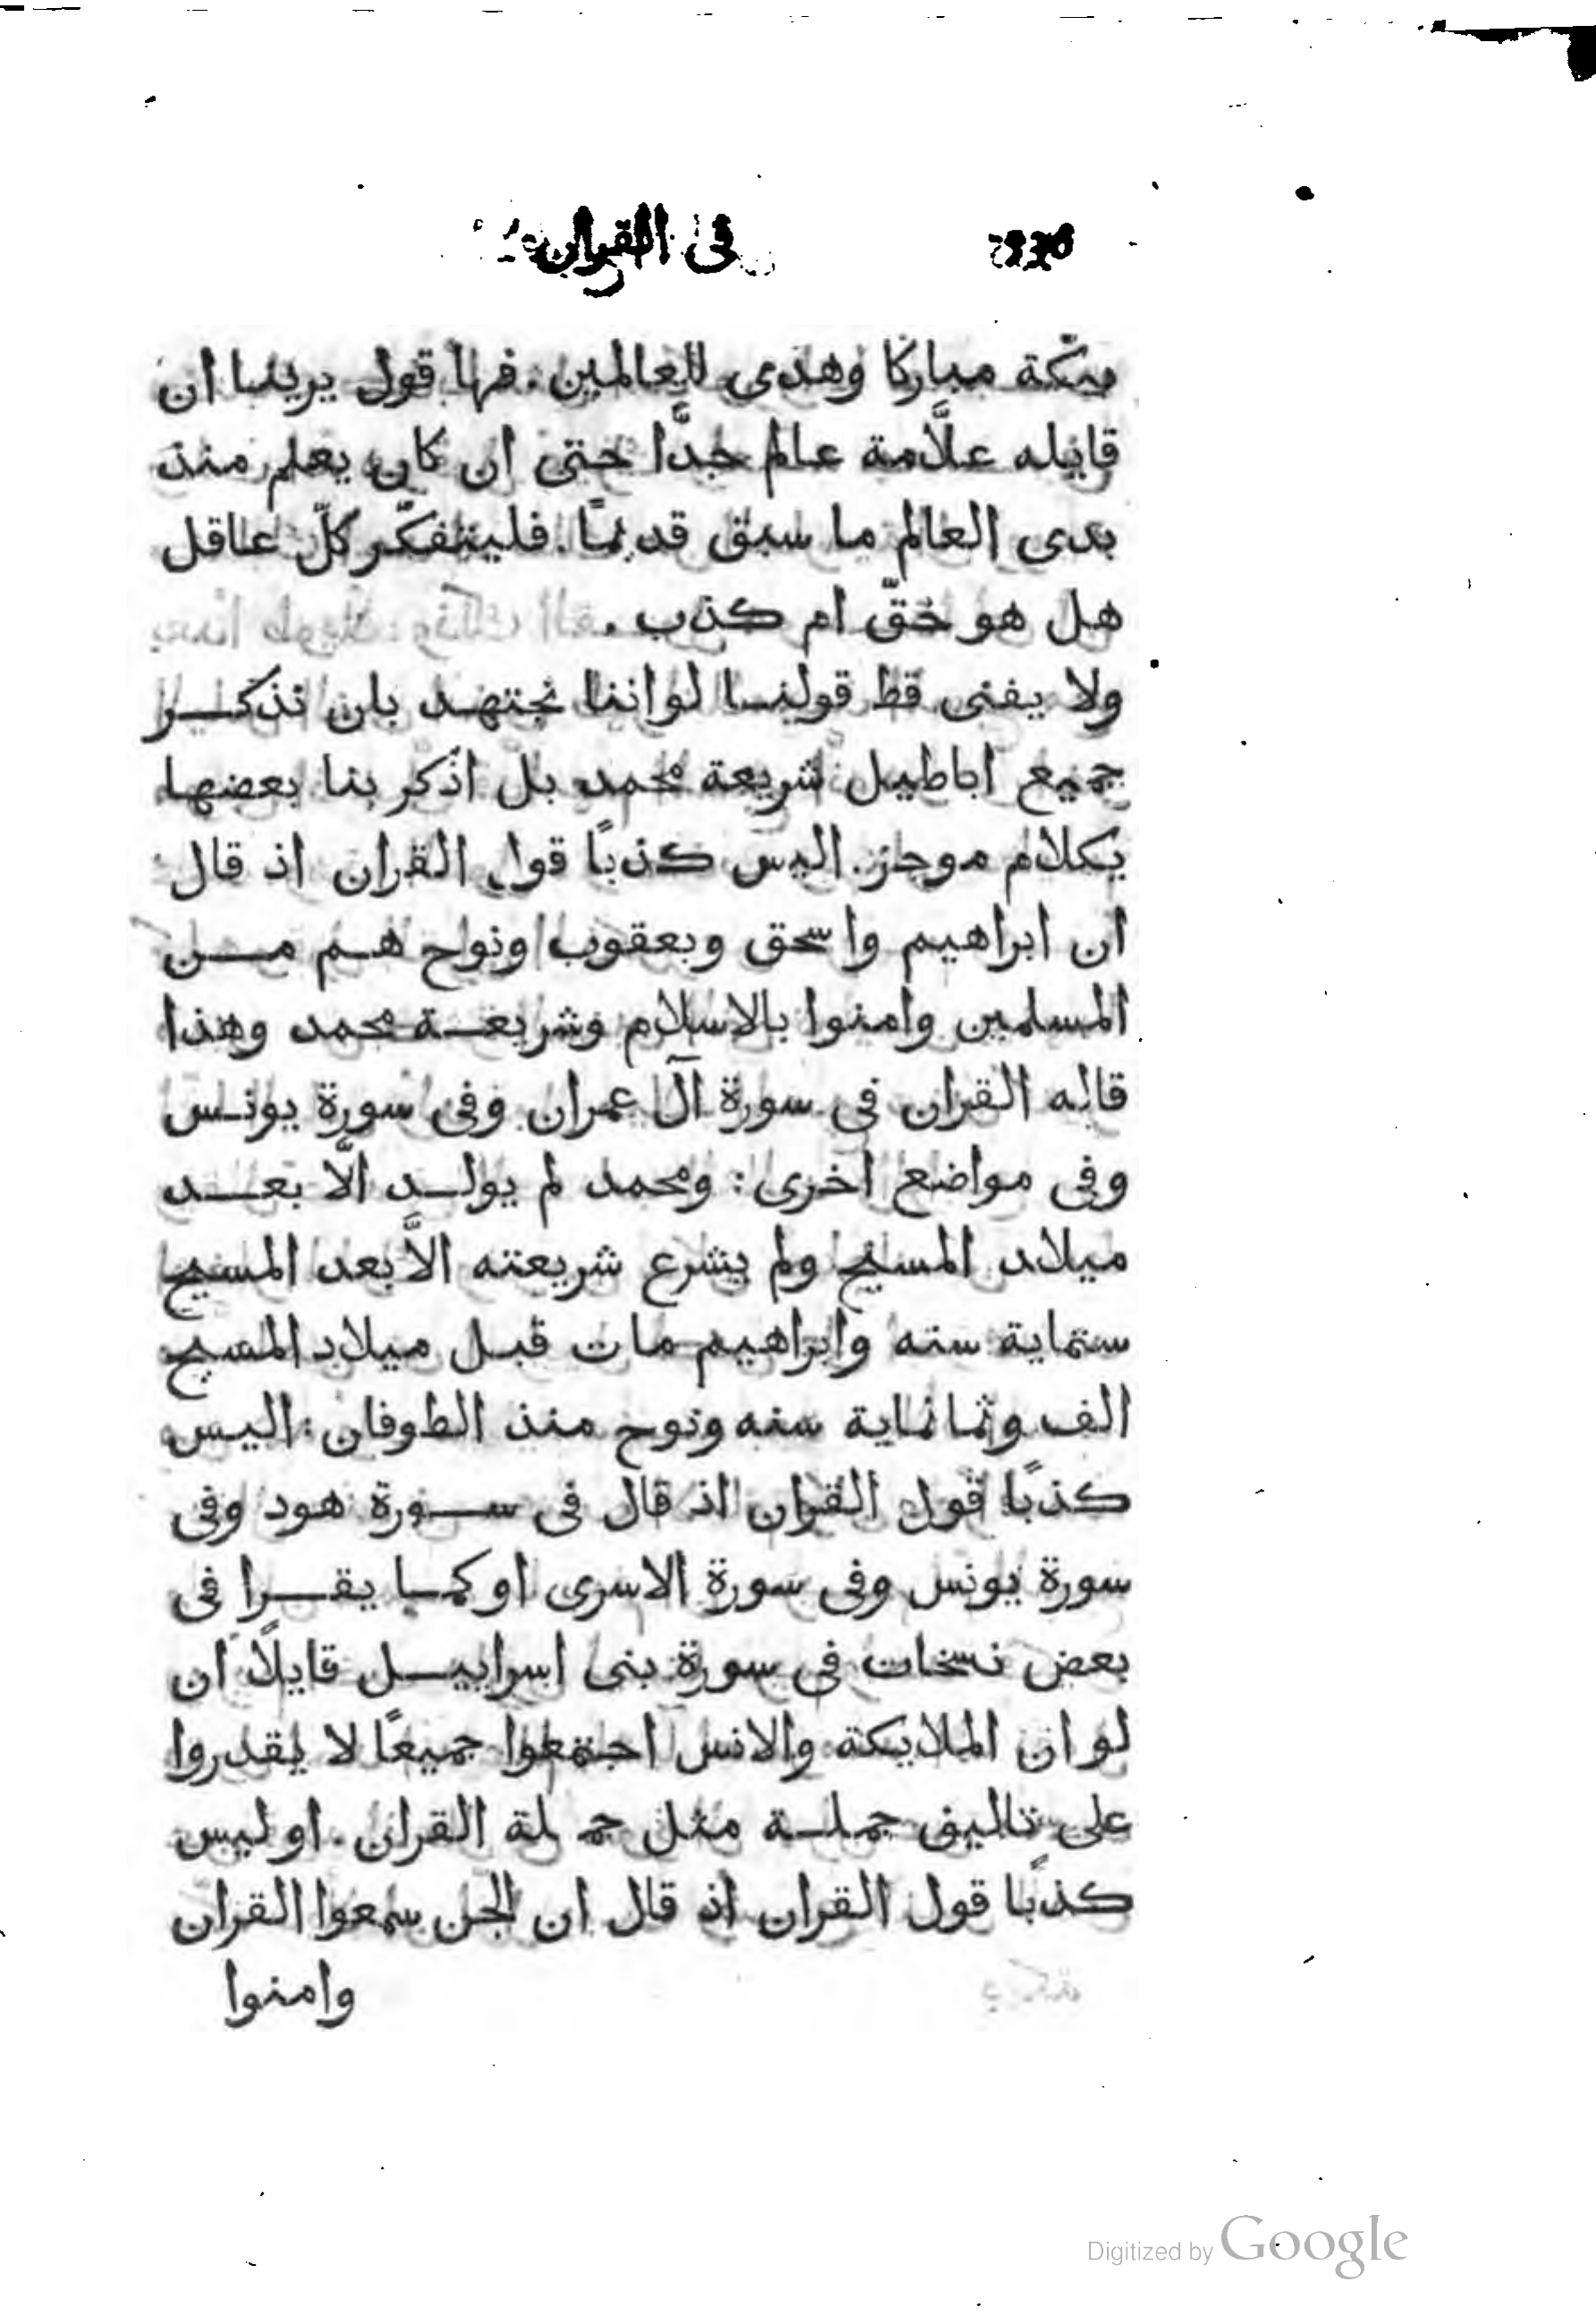 336 في القران
ببكة مباركا وهدى للعالمين. فهذا قول يرينا ان
قايله علَّامة عالم جدًّا حتى ان كان يعلم منذ
بدى العالم ما سبق قديمًا. فليتفكّر كلّ عاقل
هل هو حقّ ام كذب.
ولا يفنى قط قولنا لو اننا نجتهد بان نذكر
جميع اباطيل شريعة محمد بل اذكر بنا بعضها
بكلام موجز. اليس كذبًا قول القران اذ قال
ان ابراهيم واسحق ويعقوب ونوح هم من
المسلمين وامنوا بالاسلام وشريعة محمد وهذا
قاله القران في سورة آل عمران وفي سورة يونس
وفي مواضع اخرى: ومحمد لم يولد الَّا بعد
ميلاد المسيح ولم يشرع شريعته الَّا بعد المسيح
ستماية سنه وابراهيم مات قبل ميلاد المسيح
الف وثمانماية سنه ونوح منذ الطوفان: اليس
كذبًا قول القران اذ قال في سورة هود وفي
سورة يونس وفي سورة الاسرى او كما يقرا في
بعض نسخات في سورة بني اسراييل قايلًا ان
لو ان الملايكة والانس اجتمعوا جميعًا لا يقدروا
على تاليف جملة مثل جملة القران. او ليس
كذبًا قول القران اذ قال ان الجن سمعوا القران
وامنوا
Digitized by Google